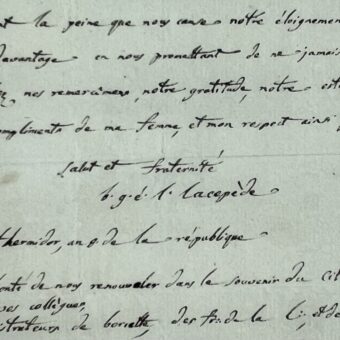 la peine que nous cause notre éloignement
davantage en nous promettant de ne jamais
nos remercimens, notre gratitude, notre
compliments de ma femme, et mon respect ainsi
salut et fraternité
b. g. é. l. lacepède
thermidor, an de la république
de nous renouveler dans le souvenir du
collègues,
de des de la et de